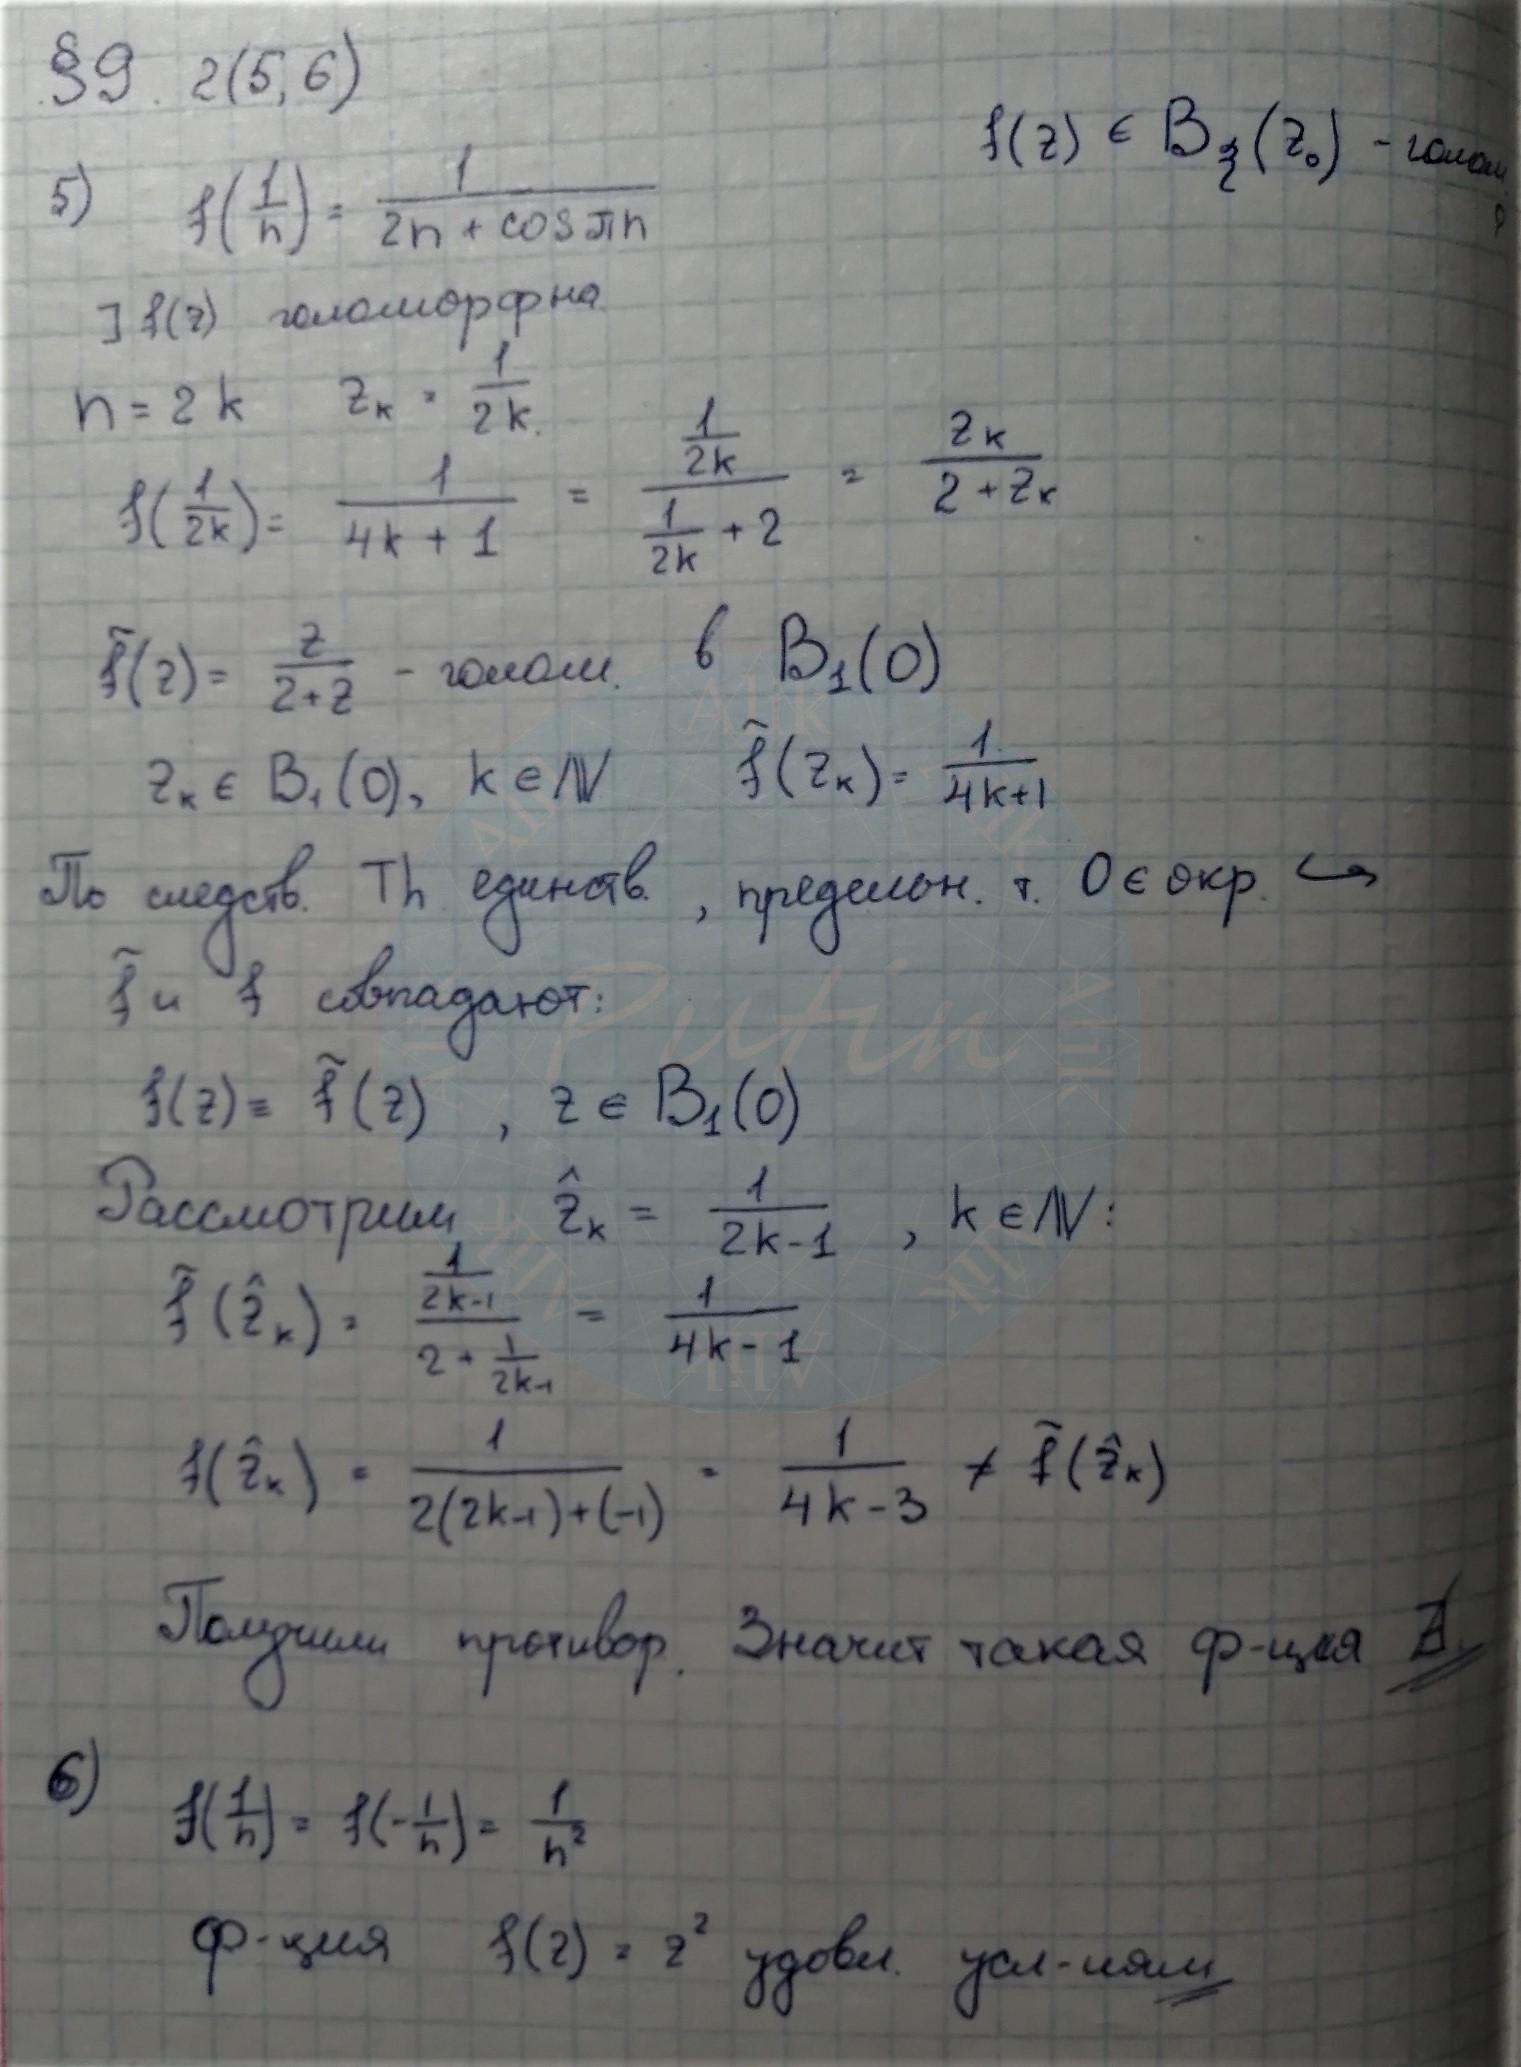 §9. 2(5,6)
f(z) ∈ B_ξ(z₀) - голом.
5) f(1/n) = 1/(2n + cos πn)
] f(z) голоморфна
n = 2k z_k = 1/2k.
f(1/2k) = 1/(4k + 1) = (1/2k)/(1/2k + 2) = z_k/(2 + z_k)
f̃(z) = z/(2+z) - голом. в B₁(0)
z_k ∈ B₁(0), k ∈ ℕ f̃(z_k) = 1/(4k+1)
По следств. Th единств., предельн. т. 0 ∈ окр. ↪
f̃ и f совпадают:
f(z) ≡ f̃(z) , z ∈ B₁(0)
Рассмотрим ẑ_k = 1/(2k-1) , k ∈ ℕ:
f̃(ẑ_k) = (1/(2k-1))/(2 + 1/(2k-1)) = 1/(4k-1)
f(ẑ_k) = 1/(2(2k-1)+(-1)) = 1/(4k-3) ≠ f̃(ẑ_k)
Получили противор. Значит такая ф-ция ∄.
6) f(1/n) = f(-1/n) = 1/n²
ф-ция f(z) = z² удовл. усл-иям
Putin
Alik
Alik
Alik
Alik
Alik
Alik
Alik
Alik